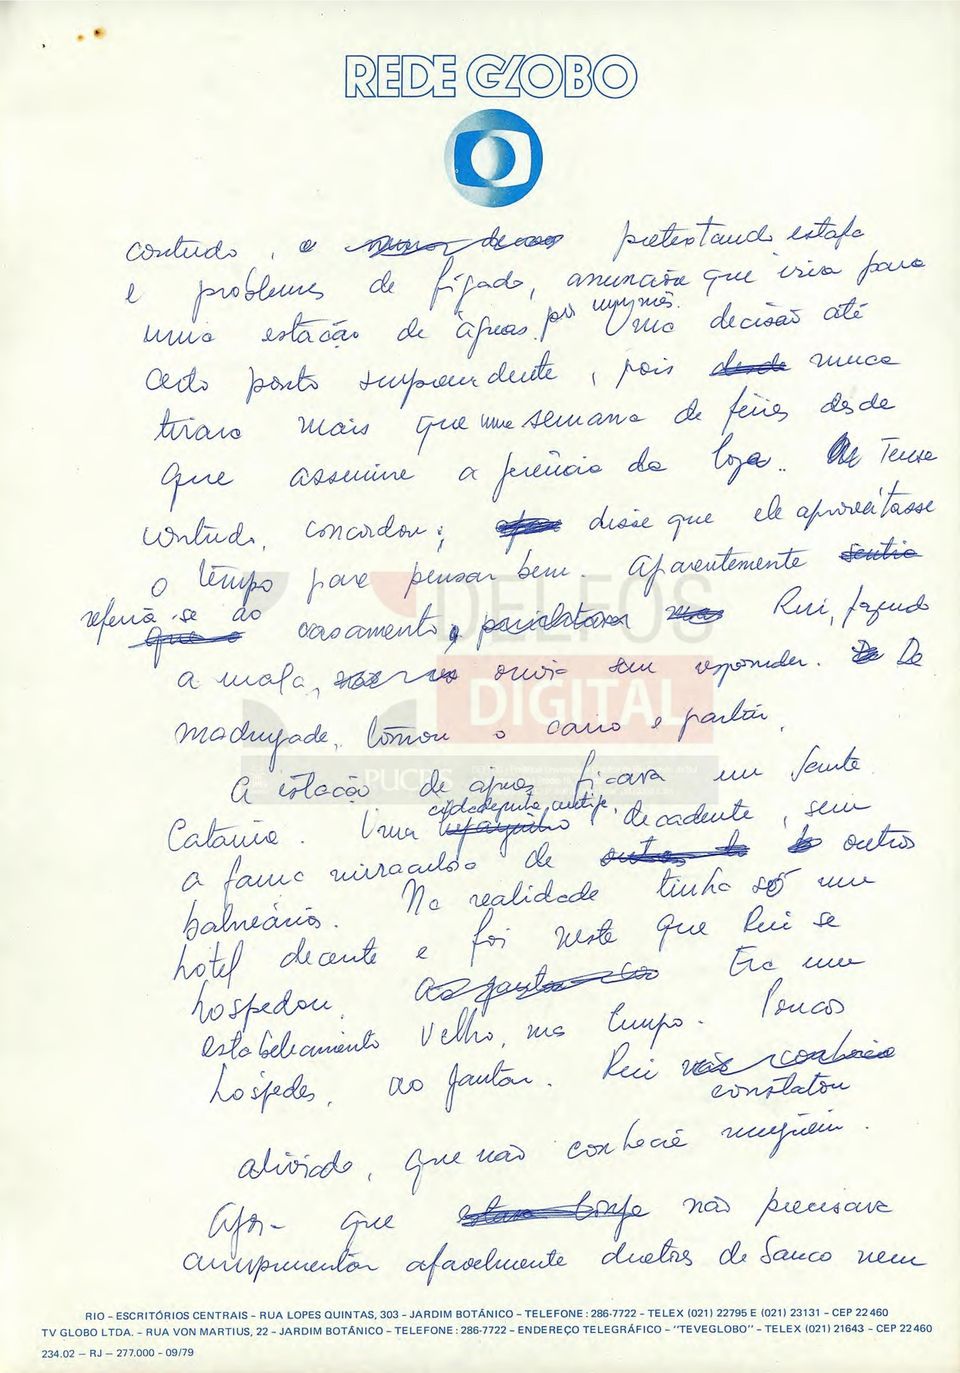 REDE GLOBO
contudo, e pretextando estafa
e problemas de fígado, anunciou que iria para
uma estação de águas por um mês. Uma decisão até
certo ponto surpreendente, pois desde nunca
tirara mais que uma semana de férias desde
que assumira a gerência da loja. Tensa
contudo, concordou; disse que ele aproveitasse
o tempo para pensar bem. Aparentemente sentia
referia-se ao casamento, Rui, fazendo
a mala, ouvia sem responder. De
madrugada, tomou o carro e partiu.
A estação de águas ficava em Santa
Catarina. Uma cidadezinha antiga, decadente, sem
a fama miraculosa de outros
balneários. Na realidade tinha só um
hotel decente e foi neste que Rui se
hospedou. Era um
estabelecimento velho, mas limpo. Poucos
hóspedes, ao jantar. Rui não conhecia
constatou
aliviado, que não conhecia ninguém.
que estava longe não precisava
cumprimentar afavelmente diretores de banco nem
DELFOS
DIGITAL
PUCRS
RIO - ESCRITÓRIOS CENTRAIS - RUA LOPES QUINTAS, 303 - JARDIM BOTÂNICO - TELEFONE: 286-7722 - TELEX (021) 22795 E (021) 23131 - CEP 22460
TV GLOBO LTDA. - RUA VON MARTIUS, 22 - JARDIM BOTÂNICO - TELEFONE: 286-7722 - ENDEREÇO TELEGRÁFICO - "TEVEGLOBO" - TELEX (021) 21643 - CEP 22460
234.02 - RJ - 277.000 - 09/79